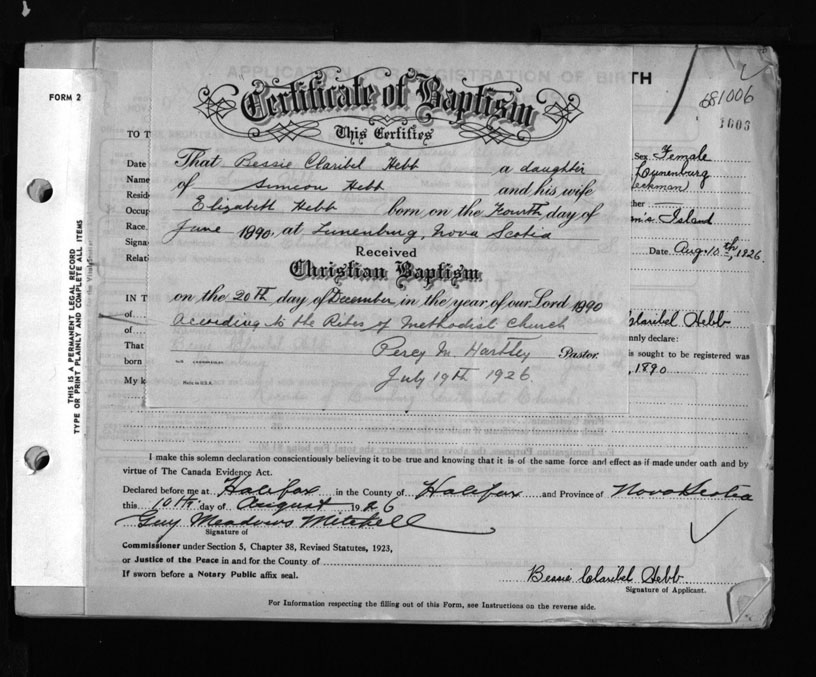 APPLICATION FOR REGISTRATION OF BIRTH
681006
1603
FORM 2
THIS IS A PERMANENT LEGAL RECORD
TYPE OR PRINT PLAINLY AND COMPLETE ALL ITEMS
Certificate of Baptism
This Certifies
That Bessie Claribel Hebb a daughter
of Simeon Hebb and his wife
Elizabeth Hebb born on the Fourth day of
June 1890. at Lunenburg, Nova Scotia
Received
Christian Baptism
on the 20th day of December in the year of our Lord 1890
According to the Rites of Methodist Church
Percy M Hartley Pastor.
July 19th 1926.
Made in U.S.A.
TO T
Date
Name
Resid
Occup
Race
Signa
Relat
IN T
of
of
That
born
My k
Sex Female
Lunenburg
Island
Date Aug. 10th, 1926.
laribel Hebb
nnly declare:
is sought to be registered was
, 1890
I make this solemn declaration conscientiously believing it to be true and knowing that it is of the same force and effect as if made under oath and by
virtue of The Canada Evidence Act.
Declared before me at Halifax in the County of Halifax and Province of Nova Scotia
this 10th day of August 1926
Guy Meadows Mitchell
Signature of
Commissioner under Section 5, Chapter 38, Revised Statutes, 1923,
or Justice of the Peace in and for the County of
If sworn before a Notary Public affix seal.
Bessie Claribel Hebb
Signature of Applicant.
For Information respecting the filling out of this Form, see Instructions on the reverse side.